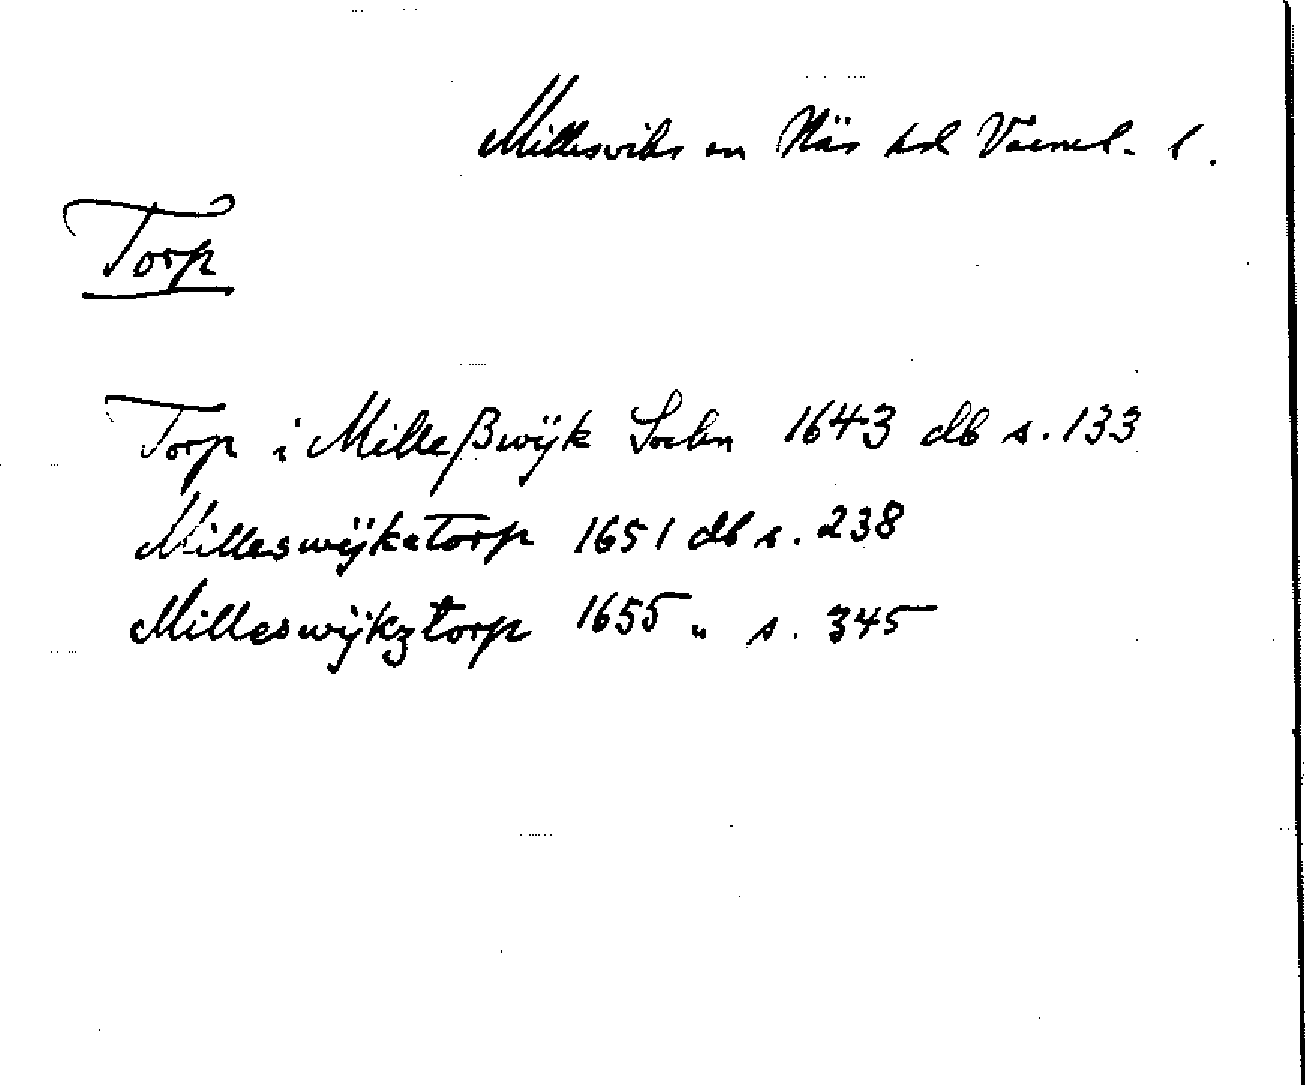 Millesviks sn Näs hd Värml. l.
Torp
Torp i Milleßwÿk Sochn 1643 db s. 133
Milleswÿkstorp 1651 db s. 238
Milleswÿkztorp 1655 " s. 345